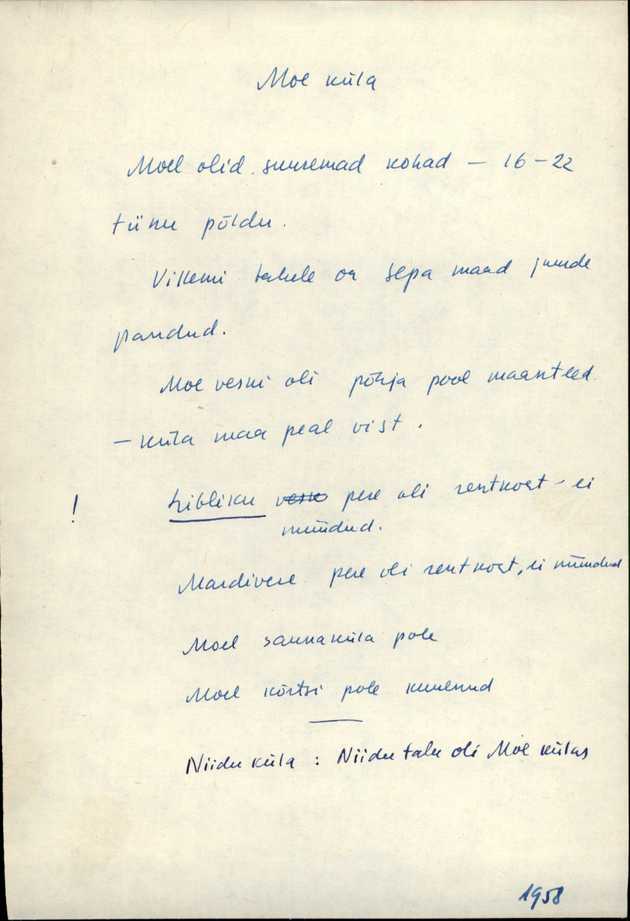 Moe küla
Moel olid suuremad kohad – 16–22
tünu põldu.
Villemi talule on sepa maad juurde
pandud.
Moe veski oli põhja pool maanteed
– küla maa peal vist.
! Libliku vesk pere oli rentkoht – ei
müüdud.
Mardivere pere oli rentkoht, ei müüdud
Moel saunaküla pole
Moel kõrtsi pole kuulnud
Niidu küla : Niidu talu oli Moe külas
1958